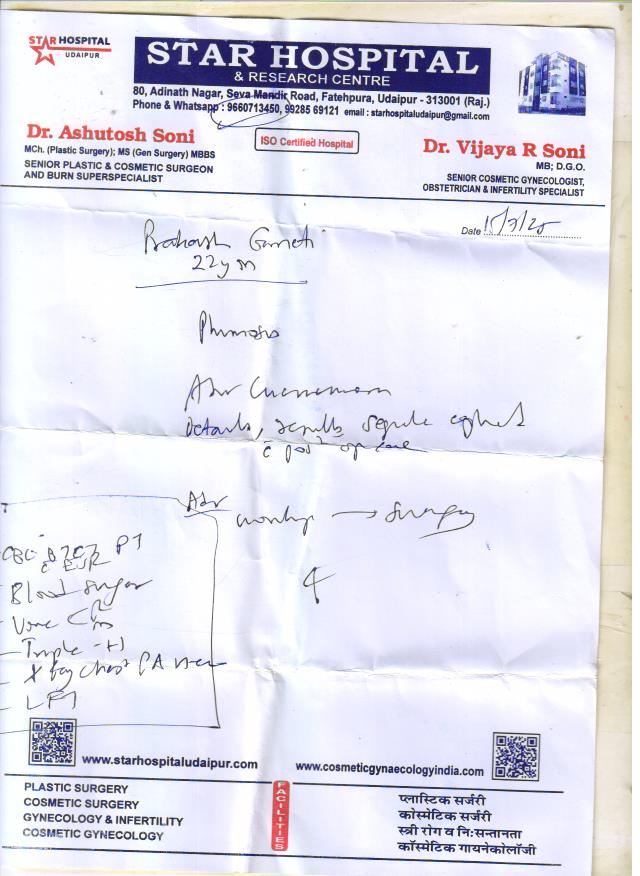 STAR HOSPITAL
UDAIPUR
STAR HOSPITAL
& RESEARCH CENTRE
80, Adinath Nagar, Seva Mandir Road, Fatehpura, Udaipur - 313001 (Raj.)
Phone & Whatsapp : 9660713450, 99285 69121 email : starhospitaludaipur@gmail.com
Dr. Ashutosh Soni
MCh. (Plastic Surgery); MS (Gen Surgery) MBBS
SENIOR PLASTIC & COSMETIC SURGEON
AND BURN SUPERSPECIALIST
ISO Certified Hospital
Dr. Vijaya R Soni
MB; D.G.O.
SENIOR COSMETIC GYNECOLOGIST,
OBSTETRICIAN & INFERTILITY SPECIALIST
Date
22y m
Phimosis
Adv
Details, results
c post op care
Adv
workup → Surgery
CBC BT CT PT
c ESR
Blood Sugar
Urine
- Triple - H
- X Ray Chest PA view
- LFT
www.starhospitaludaipur.com
www.cosmeticgynaecologyindia.com
PLASTIC SURGERY
COSMETIC SURGERY
GYNECOLOGY & INFERTILITY
COSMETIC GYNECOLOGY
FACILITIES
प्लास्टिक सर्जरी
कोस्मेटिक सर्जरी
स्त्री रोग व नि:सन्तानता
कॉस्मेटिक गायनेकोलॉजी